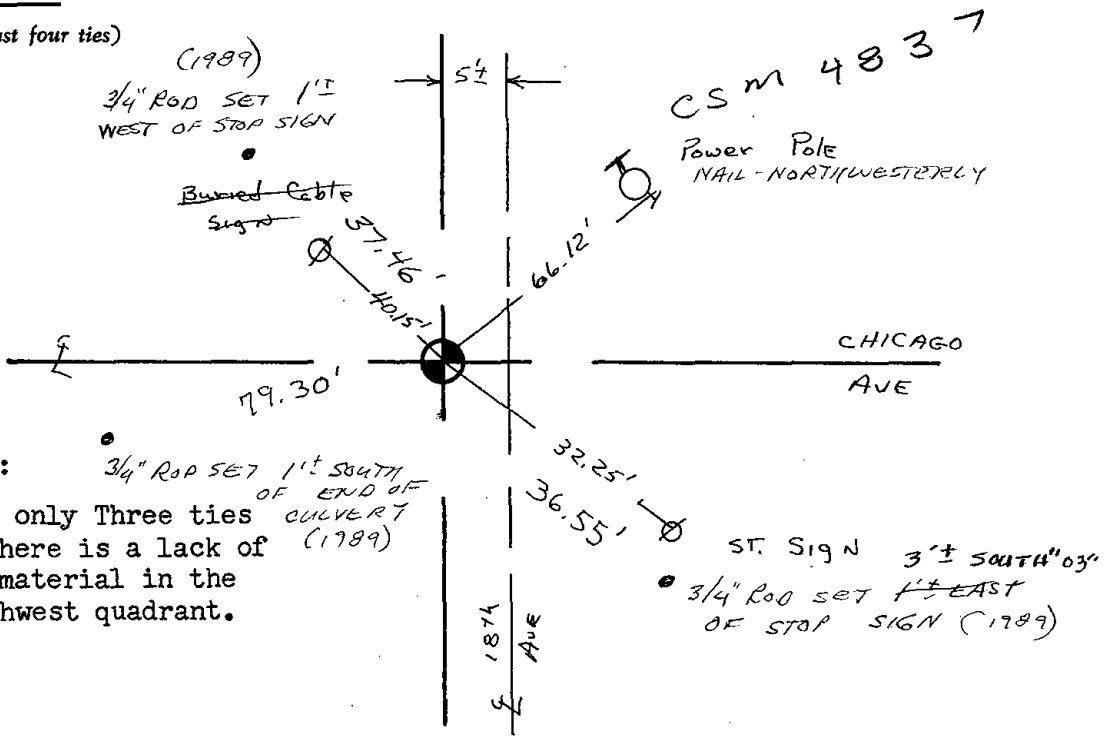 ast four ties)
(1989)
3/4" ROD SET 1'±
WEST OF STOP SIGN
Buried Cable
Sign
5'±
CSM 4837
Power Pole
NAIL - NORTHWESTERLY
37.46'
40.15'
66.12'
CHICAGO
AVE
79.30'
3/4" ROD SET 1'± SOUTH
OF END OF
CULVERT
(1989)
:
only Three ties
here is a lack of
material in the
hwest quadrant.
32.25'
36.55'
ST. SIGN
3'± SOUTH "03"
3/4" ROD SET 1'± EAST
OF STOP SIGN (1989)
18th
AVE